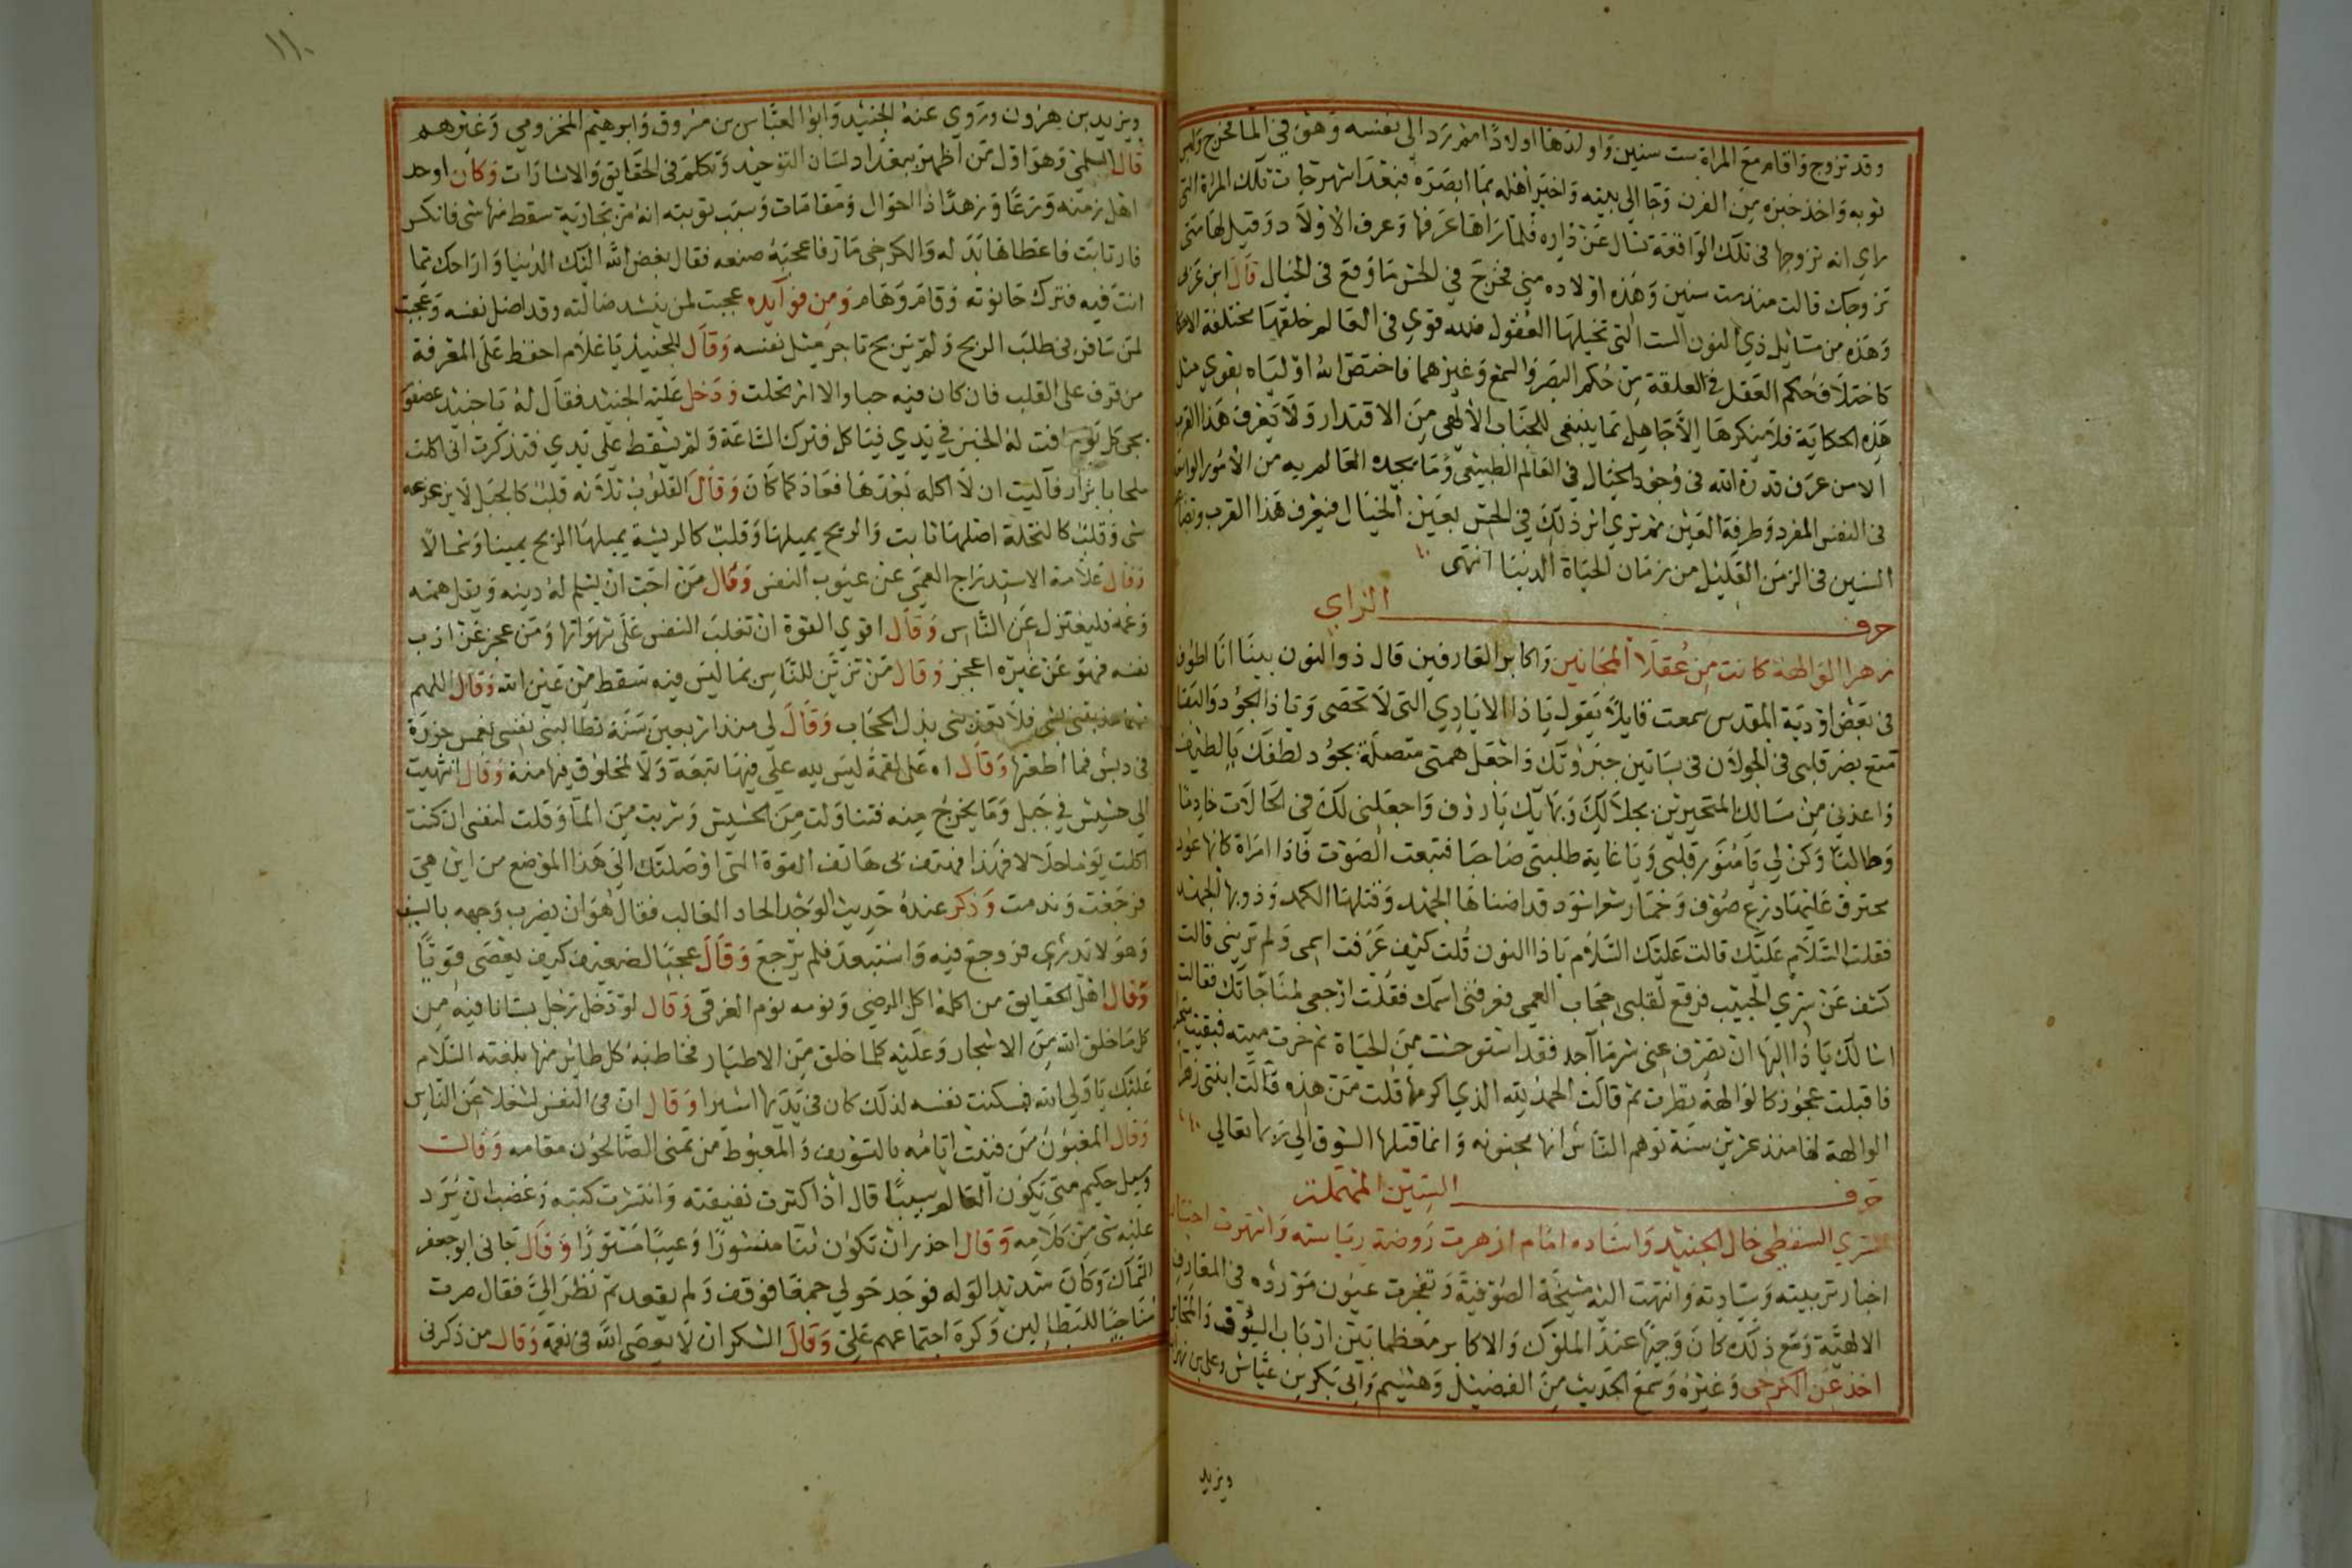 وقد تزوج واقام مع المراة ست سنين واولدها اولادا ثم رد الى نفسه وهو في الما فخرج ولبس
ثوبه واخذ خبزه من الفرن وجا الى بيته واخبر اهله بما ابصره فبعد اشهر جات تلك المراة التي
راي انه تزوجها في تلك الواقعة تسال عن داره فلما راها عرفها وعرف الاولاد وقيل لها متى
تزوجك قالت منذ ست سنين وهذه اولاده مني فخرج في الحس ما وقع في الخيال قال ابن عربي
وهذه من مسائل ذي النون الست التي تخيلها العقول فلله قوي في العالم خلقها مختلفة الاحكام
كاختلاف حكم العقل في العلقة من حكم البصر والسمع وغيرهما فاختص الله اولياه بقوي مثل
هذه الحكاية فلا ينكرها الا جاهل بما ينبغي للجناب الالهي من الاقتدار ولا يعرف هذا القرب
الا من عرف قدرة الله في وجود الخيال في العالم الطبيعي وما يجده العالم به من الامور الواسعة
في النفس المفرد وطرفة العين ثم تري اثر ذلك في الحس بعين الخيال فيعرف هذا القرب وتضاعف
السنين في الزمن القليل من زمان الحياة الدنيا انتهى
حرف الزاي
زهرا الوالهة كانت من عقلا المجانين واكابر العارفين قال ذو النون بينا انا اطوف
في بعض اودية المقدس سمعت قايلا يقول يا ذا الايادي التي لا تحصى ويا ذا الجود والبقا
متع بصر قلبي في الجولان في بساتين جبروتك واجعل همتي متصلة بجود لطفك يا لطيف
واعذني من مسالك المتحيرين بجلالك وبهايك يا رؤف واجعلني لك في الحالات خادما
وطالبا وكن لي يا منور قلبي ويا غاية طلبتي صاحبا فتبعت الصوت فاذا امراة كانها عود
محترق عليها درع صوف وخمار شعر اسود قد اضناها الجهد وقتلها الكمد وذوبها الجهد
فقلت السلام عليك قالت عليك السلام يا ذا النون قلت كيف عرفت اسمي ولم تريني قالت
كشف عن سري الحبيب فرفع لقلبي حجاب العمي فعرفني اسمك فقلت ارجعي لمناجاتك فقالت
اسالك يا ذا البها ان تصرف عني شر ما اجد فقد استوحشت من الحياة ثم خرت ميته فبقيت
فاقبلت عجوز كالوالهة نظرت ثم قالت الحمد لله الذي اكرمها قلت من هذه قالت ابنتي زهرا
الوالهة لها منذ عشرين سنة توهم الناس انها مجنونه وانما قتلها الشوق الى ربها تعالي
حرف السين المهملة
سري السقطي خال الجنيد واستاده امام ازهرت روضة رياسته واشتهرت
اخبار تربيته وسيادته وانتهت اليه مشيخة الصوفية وتفجرت عيون موردّه في المعارف
الالهية ومع ذلك كان وجيها عند الملوك والاكابر معظما بين ارباب السيوف والمحابر
اخذ عن الكرخي وغيره وسمع الحديث من الفضيل وهشيم وابي بكر بن عياش وعلي بن
ويزيد
١١٠
ويزيد بن هرون وروي عنه الجنيد وابو العباس بن مسروق وابرهيم المخزومي وغيرهم
قال السلمي وهو اول من اظهر ببغداد لسان التوحيد وتكلم في الحقايق والاشارات وكان اوحد
اهل زمنه ورعا وزهدا ذا احوال ومقامات وسبب توبته انه مر بجارية سقط منها شي فانكسر
فارتابت فاعطاها بدله والكرخي مار فاعجبه صنعه فقال بغض الله اليك الدنيا واراحك مما
انت فيه فترك حانوته وقام وهام ومن فوايده عجبت لمن ينشد ضالته وقد اضل نفسه وعجبت
لمن سافر في طلب الربح ولم يربح تاجر مثل نفسه وقال للجنيد يا غلام احفظ على المعرفة
من قرف على القلب فان كان فيه حيا والا ارتحلت ودخل عليه الجنيد فقال له يا جنيد عصفور
يجي كل يوم افت له الخبز في يدي فياكل فنزل الساعة ولم يسقط على يدي فتذكرت اني اكلت
ملحا بابزار فآليت ان لا اكله بعدها فعاد كما كان وقال القلوب ثلاثه قلب كالجبل لا يزعزعه
شي وقلب كالنخلة اصلها ثابت والريح يميلها وقلب كالريشة يميلها الريح يمينا وشمالا
وقال علامة الاستدراج العمي عن عيوب النفس وقال من احب ان يسلم له دينه ويقل همه
وغمه فليعتزل عن الناس وقال اقوي القوة ان تغلب النفس على شهواتها ومن عجز عن ادب
نفسه فهو عن غيره اعجز وقال من تزين للناس بما ليس فيه سقط من عين الله وقال اللهم
مهما عذبتني بشي فلا تعذبني بذل الحجاب وقال لي منذ اربعين سنة تطالبني نفسي بغمس جزرة
في دبس فما اطعتها وقال اه على لقمة ليس لله علي فيها تبعة ولا لمخلوق فيها منة وقال انتهيت
الى حشيش في جبل وما يخرج منه فتناولت من الحشيش وشربت من الما وقلت لنفسي ان كنت
اكلت يوما حلالا فهذا فهتف بي هاتف القوة التي اوصلتك الى هذا الموضع من اين هي
فرجعت وندمت وذكر عنده حديث الوجد الحاد الغالب فقال هو ان يضرب وجهه بالسيف
وهو لا يدري فروجع فيه واستبعد فلم يرجع وقال عجبا لضعيف كيف يعصى قويا
وقال اهل الحقايق من اكلة اكل المرضي ونومه نوم الغرقى وقال لو دخل رجل بستانا فيه من
كل ما خلق الله من الاشجار وعليه كلما خلق من الاطيار فخاطبه كل طاير منها بلغته السلام
عليك يا ولي الله فسكنت نفسه لذلك كان في يدها اسيرا وقال ان في النفس لشغلا عن الناس
وقال المغبون من فنيت ايامه بالتسويف والمغبوط من تمنى الصالحون مقامه وقالت
وسيل حكيم متى يكون العالم سيبا قال اذا كثرت تفيقته وانتشرت كتبه وغضب ان يرد
عليه شي من كلامه وقال احذر ان تكون ثنا منشورا وعيبا مستورا وقال جاني ابو جعفر
السماك وكان شديد الوله فوجد حولي جمعا فوقف ولم يقعد ثم نظر الي فقال صرت
مناخا للبطالين وكره اجتماعهم علي وقال الشكر ان لا يعصى الله في نعمه وقال من ذكرني